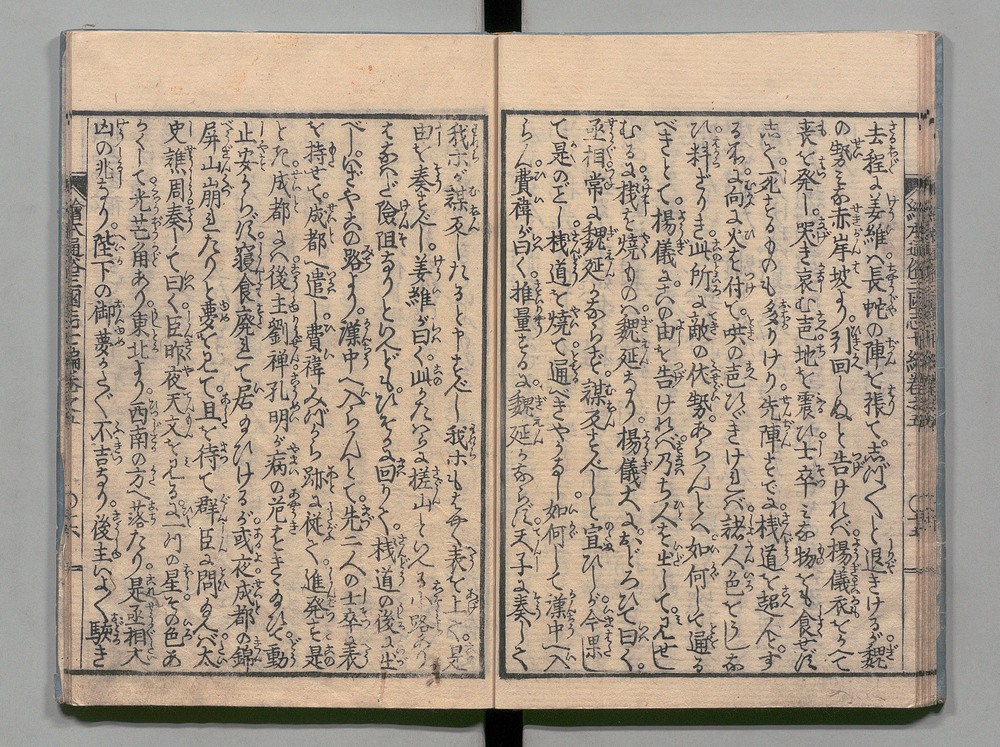 去程に姜維ハ長蛇の陣を張て志づ〱と退きけるが魏
の勢ミな赤岸坡より引回しぬと告けれバ楊儀衣をかへて
喪を発し哭き哀む声地を震ひ士卒ミな物をも食せず
志て死するものも多かりけり先陣すでに桟道を超んとす
る所に向に火を付て吶の声ひゞきけれバ諸人色をうしな
ひ料ざりき此所に敵の伏勢あらんとハ如何して通る
べきとて楊儀に此由を告けれバ乃ち人を出して見せし
むるに桟を焼ものハ魏延なり楊儀大におどろひて曰く
丞相常に魏延かならず謀反すべしと宣ひしが今果し
て是のごとし桟道を焼て通べきやうなし如何して漢中へ入
らん費禕が曰く推量するに魏延かならず天子に奏して
我等が謀反したると申すべし我等もまた表を上て是
由を奏すべし姜維が曰く此かたハらに槎山といふ小路あり
はなハだ険阻なりといへどもひそかに回りて桟道の後に出
べしいざや此路より漢中へ入らんとて先二人の士卒に表
を持せて成都へ遣し費禕みづから跡に従て進発す是
とき成都にハ後主劉禅孔明が病の危をきゝ給ひて動
止安からず寝食廃れて居給ひけるが或夜成都の錦
屏山崩れたりと夢を見て旦を待て群臣に問給へバ太
史譙周奏して曰く臣昨夜天文を見るに一つの星その色あ
かくして光芒角あり東北より西南の方へ落たり是丞相大
凶の兆なり陛下の御夢かた〲不吉なり後主いよ〱驚き